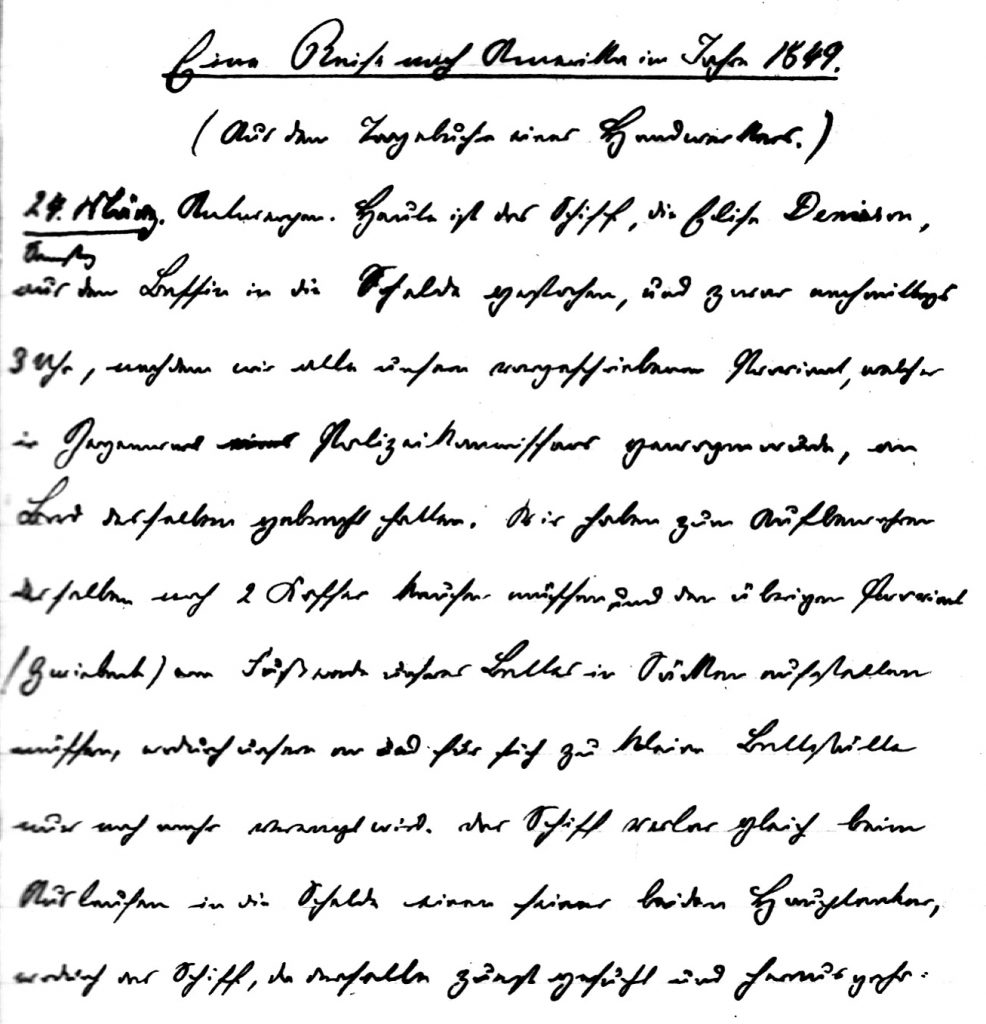 Eine Reise nach Amerika im Jahre 1849.
(Aus dem Tagebuche eines Handwerkers.)
24. März. Antwerpen. Heute ist das Schiff, die Elise Denison,
Samstag
aus dem Bassin in die Schelde gestochen, und zwar nachmittags
3 Uhr, nachdem wir alle unsern vorgeschriebenen Proviant, welcher
in Gegenwart eines Polizeikommissars gewogen wurde, an
Bord desselben gebracht hatten. Wir haben zum Aufbewahren
desselben noch 2 Koffer kaufen müssen und den übrigen Proviant
(Zwieback) am Fußende unseres Bettes in Säcken aufstellen
müssen, wodurch unsere an und für sich zu kleine Bettstelle
nur noch mehr verengt wird. Das Schiff verlor gleich beim
Auslaufen in die Schelde einen seiner beiden Hauptanker,
wodurch das Schiff, da derselbe zuerst gesucht und herausgeho-